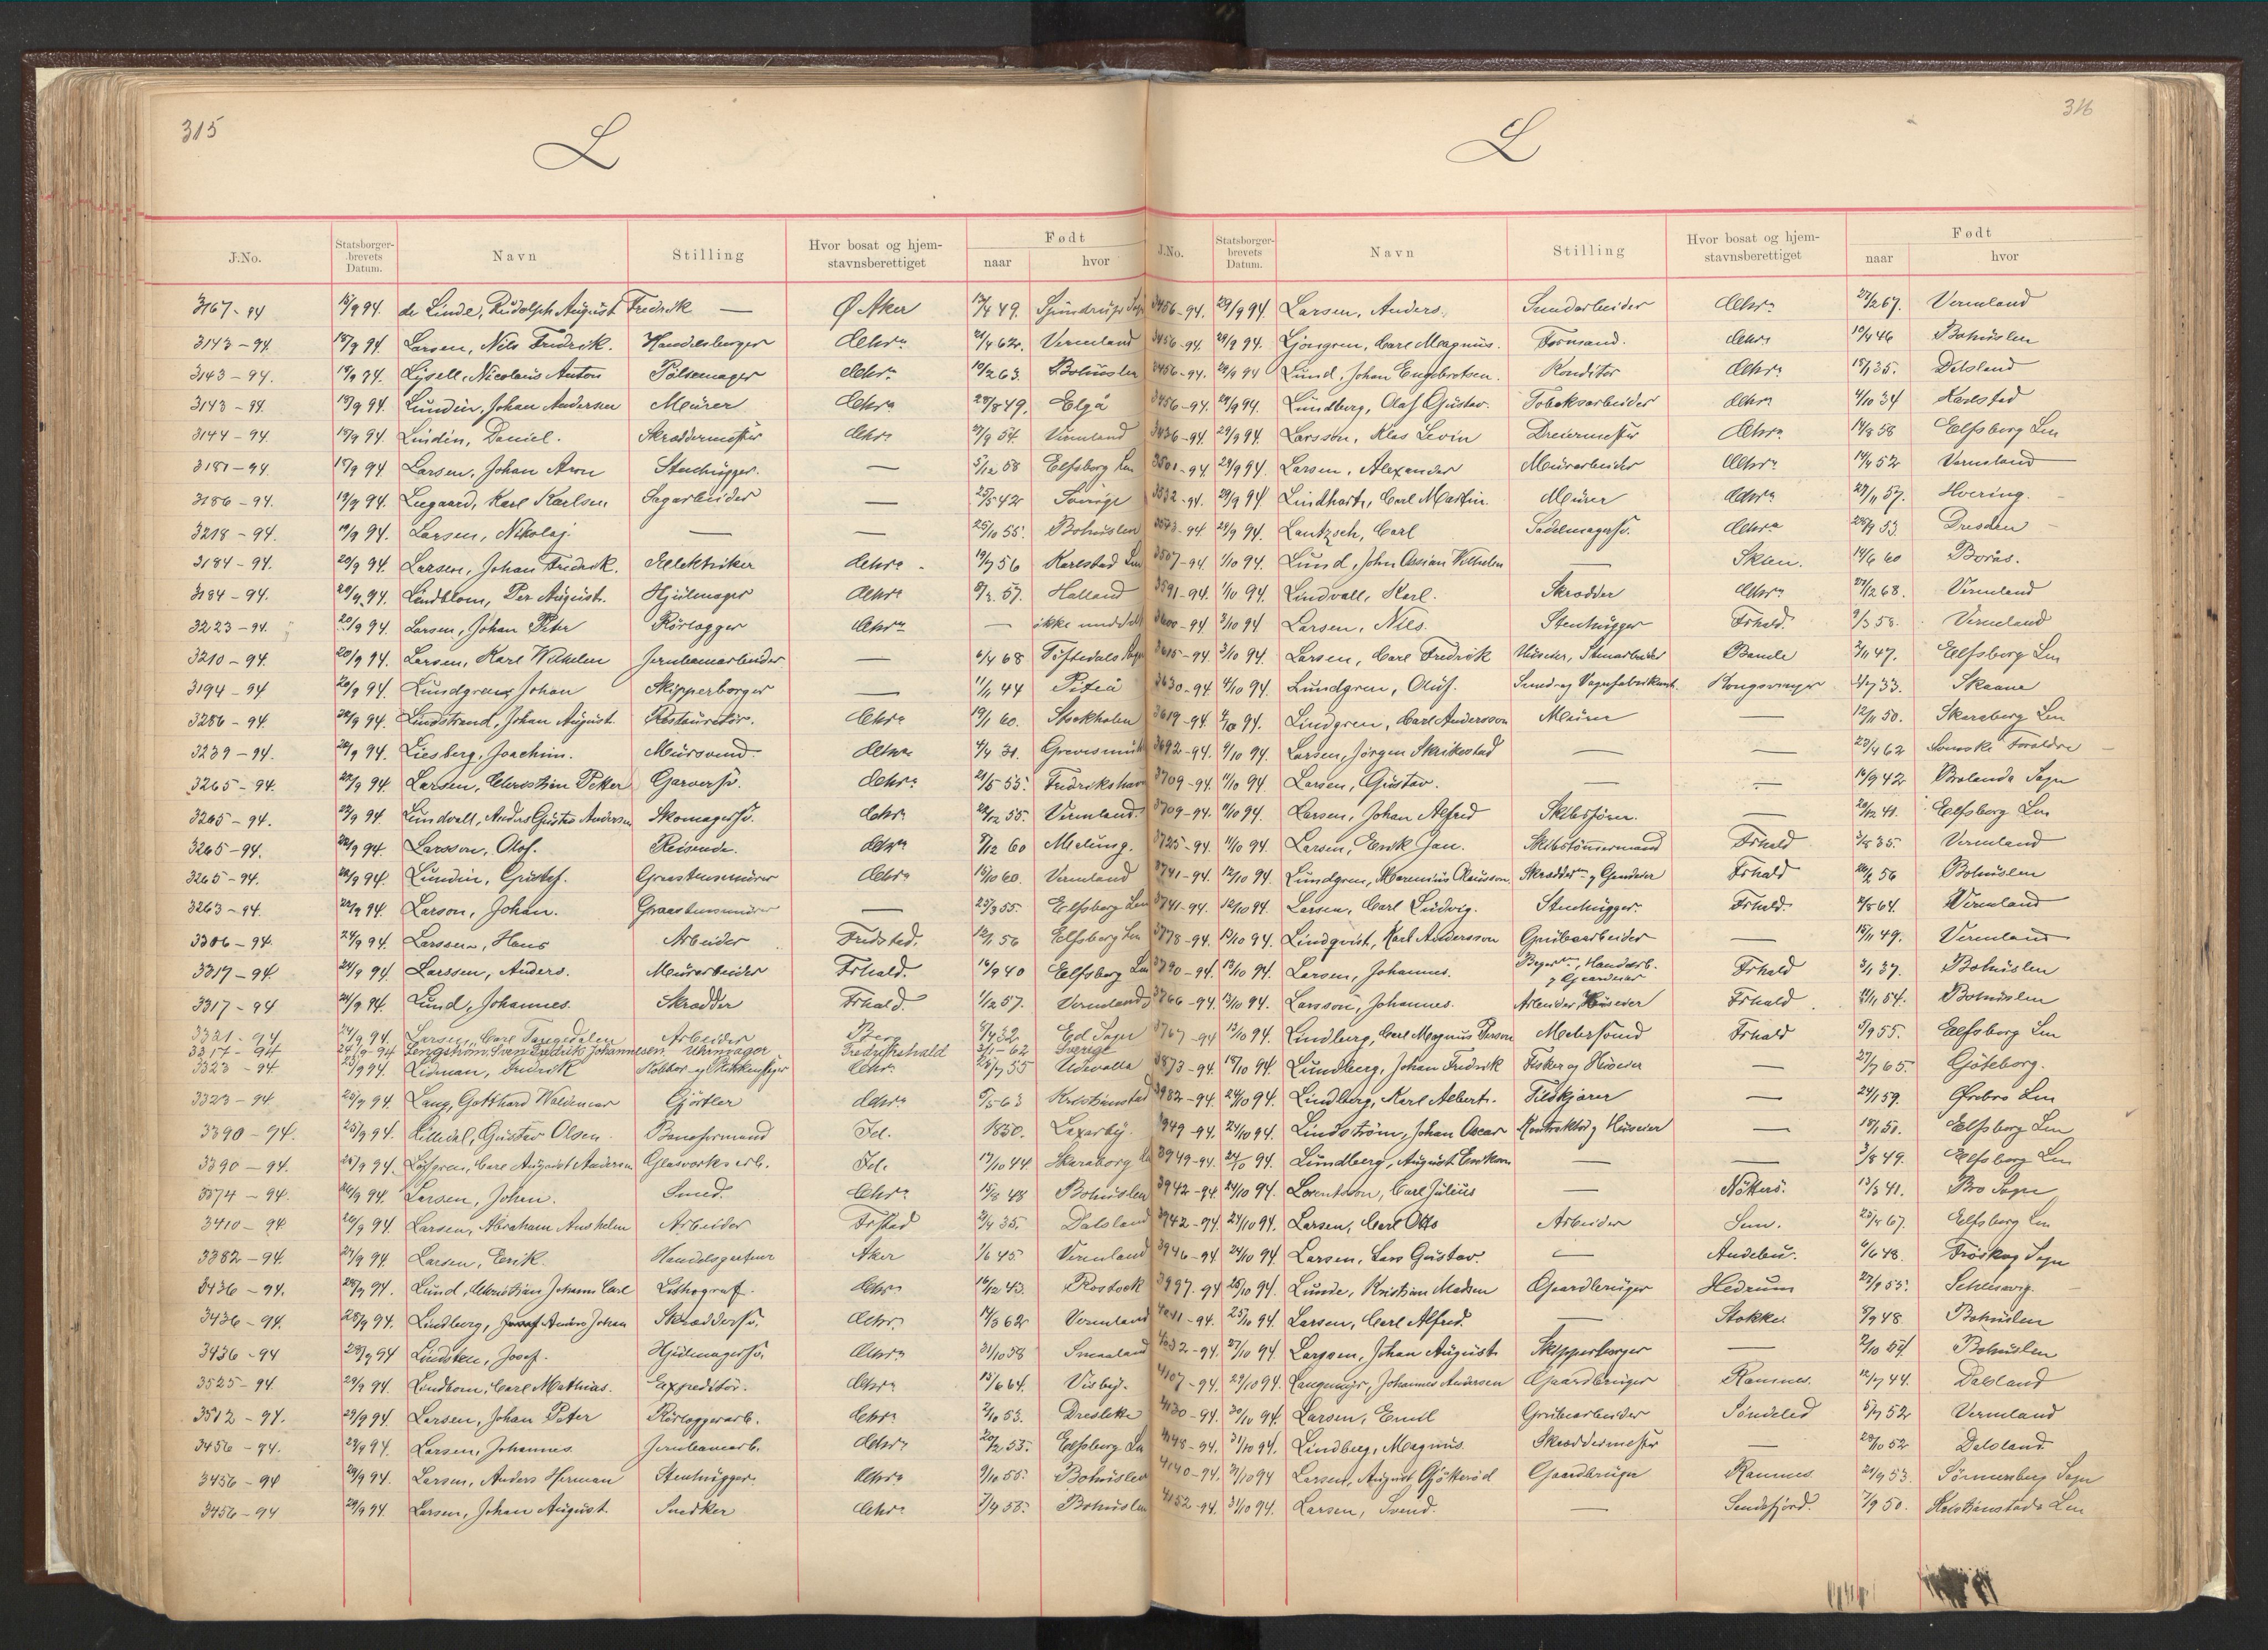 315
L
J.No. Statsborger-brevets Datum. Navn Stilling Hvor bosat og hjem-stavnsberettiget Født naar hvor
3167-94 15/9 94. de Linde, Rudolph August Fredrik — Ø Aker 49.
3143-94 Larsen, Nils Fredrik. Handelsborger Chra 21/4 62. Vermland
3143-94. Lysell, Nicolaus Anton Pølsemager Chra 63. Bohuslen
3143-94. Lundin, Johan Andersen Murer Chra 49. Elgå
3144-94. Lindin, Daniel. Skræddermester Chra 54. Vermland
3181-94 Larsen, Johan Aron Stenhugger. — 5/12 58 Elfsborg Len
3186-94. 19/9 94. Leegaard, Karl Karlsen Sagarbeider — 25/5 42 Sverige
3218-94. 19/9 94. Larsen, Nikolaj. — — 25/10 55. Bohuslen
3184-94. 20/9 94. Larsen, Johan Fredrik. Elektriker Chra 56 Karlstad Len
3184-94. 20/9 94. Lindblom, Per August. Hjulmager Chra 57. Halland
3223-94. 20/9 94 Larsen, Johan Peter Rørlægger Chra —
3210-94. 20/9 94. Larsen, Karl Wilhelm Jernbanearbeider — 6/4 68 Töftedals Sogn
3194-94 20/9 94. Lundgren, Johan Skipperborger — 44 Piteå
3286-94. Lindstrand, Johan August. Restauratør. Chra 60. Stockholm
3239-94. Liesberg, Joachim. Mursvend Chra 4/4 31.
3265-94. 22/9 94. Larsen, Christian Petter Garversv. Chra 21/5 55. Fredrikshavn
3265-94. 22/9 94. Lundvall, Anders Gustav Andersen Skomagersv. Chra 22/12 55. Vermland
3265-94. 22/9 94. Larsson, Olof. Reisende. Chra 8/12 60 Malung.
3265-94. 22/9 94. Lundin, Gustaf. Graastensmurer Chra 15/10 60. Vermland
3263-94. 22/9 94. Larson, Johan. Graastensmurer — 25/3 55. Elfsborg Len
3306-94. 24/9 94. Larssen, Hans Arbeider Fredsted. 56 Elfsborg Len
3317-94. 24/9 94. Larssen, Anders. Murarbeider Frhald. 16/9 40 Elfsborg Len
3317-94 24/9 94. Lund, Johannes. Skrædder Frhald. 1/12 57. Vermland
3321-94 24/9 94. Larsen, Carl Tangedalen Arbeider Berg 32 Ed Sogn
3317-94 24/9-94 Lengström, Sven Fredrik Johannesen Uhrmager Fredrikshald 62 Sverige
3323-94 25/9 94. Lidman, Fredrik Chra 55 Udevalla
3323-94 25/9 94. Lang, Gotthard Waldemar Gjørtler Chra 5/5 63 Kristianstad
3390-94. 25/9 94. Lilledal, Gustav Olsen. Baneformand Id. 1850. Laxarby.
3390-94. 25/9 94. Löfgren, Carl August Andersen Glasværksarb. Id. 17/10 44 Skaraborg Len
3374-94. 26/9 94. Larsen, Johan. Smed. Chra 48 Bohuslen
3410-94. 26/9 94. Larsen, Abraham Anshelm Arbeider Frsted 35. Dalsland
3382-94. 27/9 94. Larsen, Erik. Aker 1/6 45 Vermland
3436-94. 28/9 94. Lund, Christian Johann Carl Lithograf. Chra 16/12 43. Rostock
3436-94. 28/9 94. Lindberg, Anders Johan Skræddersv. Chra 62 Vermland
3436-94 28/9 94 Lindsten, Josef. Hjulmagersv. Chra 31/10 58 Smaaland
3525-94. 29/9 94. Lindbom, Carl Mathias. Expeditør. Chra 13/6 64. Visby.
3512-94. 29/9 94. Larsen, Johan Peter Rørlæggerarb. Chra 53. Dreslette
3456-94. 29/9 94. Larsen, Johannes Jernbanearb. Chra 55. Elfsborg Len
3456-94 29/9 94. Larsen, Anders Herman Stenhugger. Chra 9/10 55. Bohuslen
3456-94 29/9 94. Larsen, Johan August. Snedker Chra 55. Bohuslen
316
L
J.No. Statsborger-brevets Datum. Navn Stilling Hvor bosat og hjem-stavnsberettiget Født naar hvor
3456-94. 29/9 94. Larsen, Anders. Chra 67. Vermland
3456-94. 29/9 94. Ljongren, Carl Magnus. Formand. Chra 46 Bohuslen
3456-94. 29/9 94 Lund, Johan Engebretsen. Konditor Chra 35. Dalsland
3456-94. 29/9 94. Lundberg, Olaf Gustav. Tobaksarbeider Chra 4/10 34 Karlstad
3436-94. 29/9 94. Larsson, Klas Levin Dreiermester Chra 58 Elfsborg Len
3501-94. 29/9 94. Larsen, Alexander Murarbeider Chra 52 Vermland
3532-94. 29/9 94. Lindhart, Carl Martin. Murer Chra 57. Hvering.
3573-94. 29/9 94. Lantzsch, Carl Sadelmagersv. Chra 53 Dresden
3507-94. 1/10 94. Lund, John Ossian Wilhelm — Skien. 14/6 60 Borås.
3591-94. 1/10 94. Lindvall, Karl. Skrædder Chra 68. Vermland
3600-94. 2/10 94 Larsen, Nils. Stenhugger Frhald. 9/3 58. Vermland
3615-94 3/10 94. Larsen, Carl Fredrik Huseier, Stenarbeider Bamle 47. Elfsborg Len
3630-94. 4/10 94. Lundgren, Oluf. Smed og Vognfabrikant. Kongsvinger 33. Skaane
3619-94. 4/10 94. Lindgren, Carl Andersson Murer — 12/11 50. Skaraborg Len
3692-94. 9/10 94. Larsen, Jörgen Skrikestad — — 62 Svenske Foraldre
3709-94. 11/10 94. Larsen, Gustav. — — 14/9 42 Brålanda Sogn
3709-94. 11/10 94. Larsen, Johan Alfred Skibsfører. — 20/12 41. Elfsborg Len
3725-94. 11/10 94. Larsen, Erik Jan. Skibstømmermand Frhald 35. Vermland
3741-94. 12/10 94. Lundgren, Marenius Clausson. Skrædder og Gaardeier Frhald 56 Bohuslen
3741-94. 12/10 94. Larsen, Carl Ludvig. Stenhugger. Frhald. 64. Vermland
3778-94. 13/10 94. Lindqvist, Karl Andersson Grubearbeider — 49. Vermland
3790-94. 13/10 94. Larsen, Johannes. Bager, Handelsb. og Gaardeier Frhald 37. Bohuslen
3766-94. 13/10 94. Larsson, Johannes. Arbeider, Huseier Frhald 54. Bohuslen
3767-94 13/10 94. Lindberg, Carl Magnus Person Frhald 5/9 55. Elfsborg Len
3873-94. 18/10 94. Lundberg, Johan Fredrik Fisker og Huseier — 27/7 65. Göteborg.
3982-94. 24/10 94. Lindberg, Karl Albert. Ildkjører — 24/1 59. Örebro Len
3949-94. 24/10 94. Lindström, Johan Oscar Kontraktör og Huseier — 50. Elfsborg Len
3949-94. 24/10 94. Lundberg, August Erikson — — 49. Elfsborg Len
3942-94. 24/10 94. Lorentsson, Carl Julius — Nötterö. 13/3 41. Bro Sogn
3942-94. 24/10 94. Larsen, Carl Otto Arbeider Sem. 67. Elfsborg Len
3946-94 24/10 94. Larsen, Lars Gustav. — Andebu. 6/6 48. Fröskog Sogn
3997-94 25/10 94. Lunde, Kristian Madsen Gaardbruger Hedrum 55. Schleswig.
4011-94. 25/10 94. Larsen, Carl Alfred. — Stokke. 48. Bohuslen
4032-94. 27/10 94. Larsson, Johan August Skipperborger — 2/10 Bohuslen
4107-94. 29/10 94. Langemyr, Johannes Andersen Gaardbruger Ramnes. 12/7 44. Dalsland
4130-94. 30/10 94. Larsen, Emil Grubearbeider Söndeled 52 Vermland
4148-94. 31/10 94. Lindberg, Magnus. Skræddermester — 28/10 52 Dalsland
4140-94. 31/10 94 Larsen, August Gjötteröd Gaardbruger Ramnes. 53.
4152-94. 31/10 94. Larsen, Svend. — Sandefjord. 7/9 50. Kristianstads Len